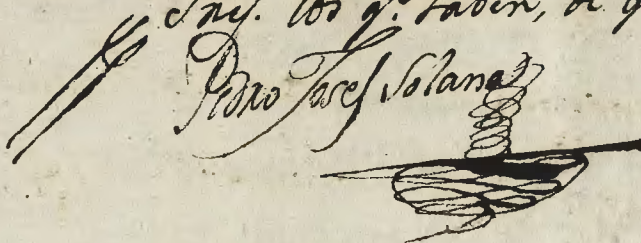 los q.e saben, de q
Pedro Josef Solana